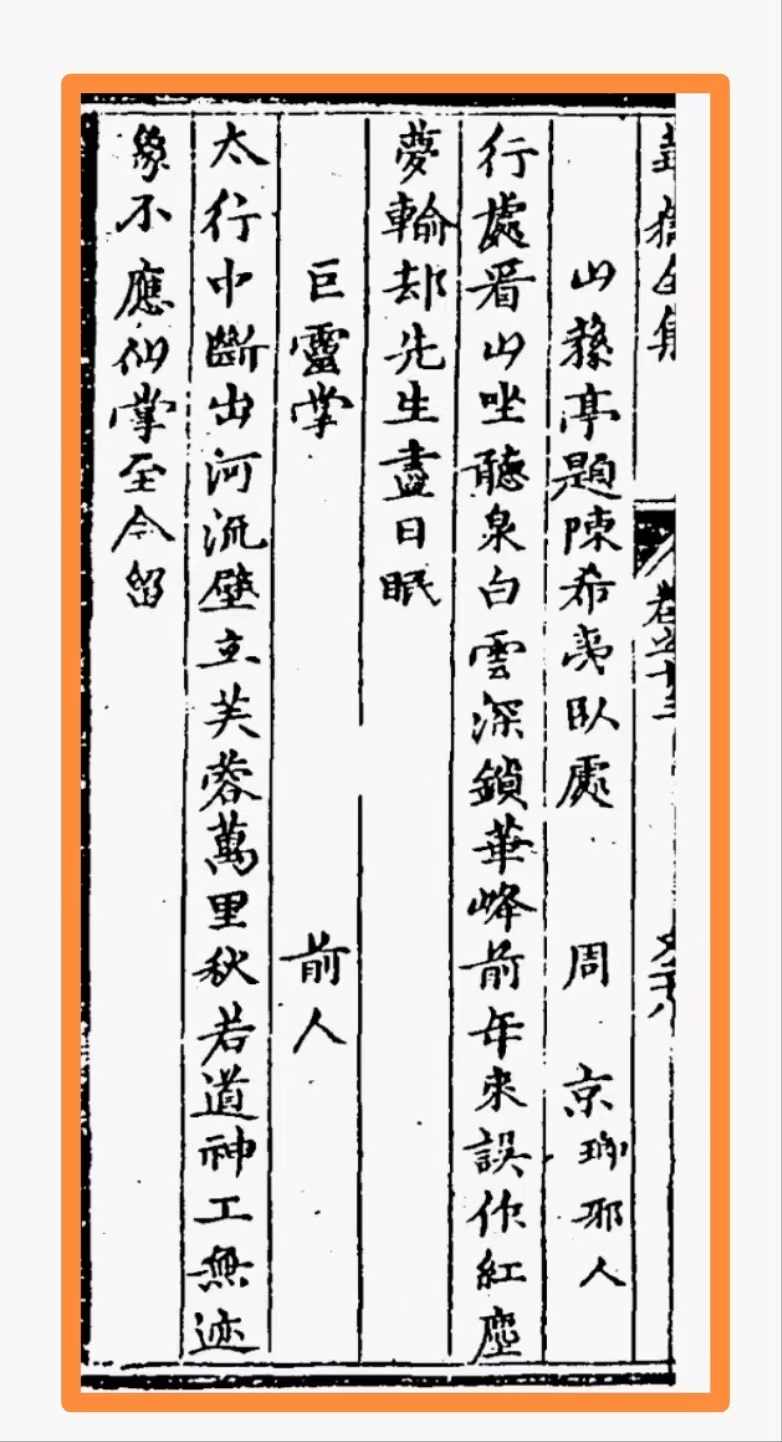 華嶽全集 卷之十三
山蓀亭題陳希夷臥處 周京瑯邪人
行處看山坐聽泉白雲深鎖華峰前年來誤作紅塵
夢輸却先生盡日眠
巨靈掌 前人
太行中斷出河流壁立芙蓉萬里秋若道神工無迹
象不應仙掌至今留